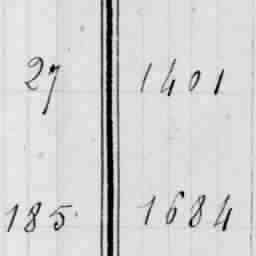 27 1401
185 1684